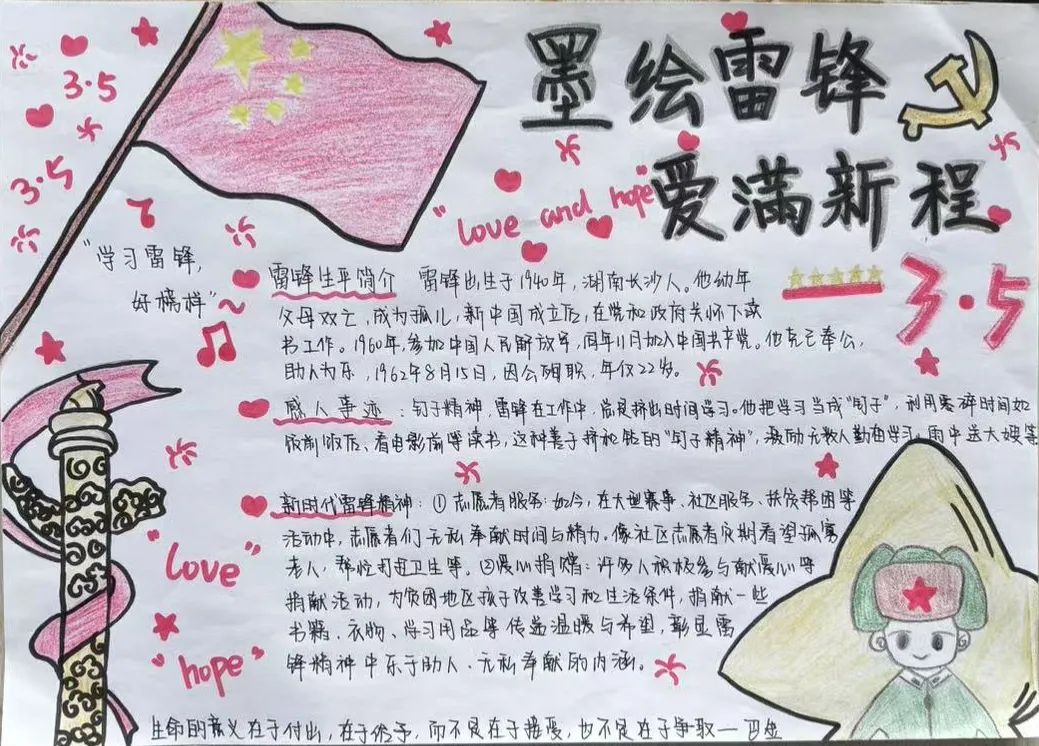 墨绘雷锋
爱满新程
3·5
3·5
"love and hope"
3·5
"学习雷锋,
好榜样"
雷锋生平简介 雷锋出生于1940年,湖南长沙人。他幼年
父母双亡,成为孤儿,新中国成立后,在党和政府关怀下读
书工作。1960年,参加中国人民解放军,同年11月加入中国共产党。他克己奉公,
助人为乐,1962年8月15日,因公殉职,年仅22岁。
感人事迹:钉子精神,雷锋在工作中,总是挤出时间学习。他把学习当成"钉子",利用零碎时间如
饭前饭后、看电影前等读书,这种善于挤和钻的"钉子精神",激励无数人勤奋学习。雨中送大嫂等
新时代雷锋精神:①志愿者服务:如今,在大型赛事、社区服务、扶贫帮困等
活动中,志愿者们无私奉献时间与精力。像社区志愿者定期看望孤寡
老人,帮忙打扫卫生等。②爱心捐赠:许多人积极参与献爱心等
捐献活动,为贫困地区孩子改善学习和生活条件,捐献一些
书籍、衣物、学习用品等传递温暖与希望,彰显雷
锋精神中乐于助人、无私奉献的内涵。
"love"
"hope"
生命的意义在于付出,在于给予,而不是在于接受,也不是在于争取—巴金